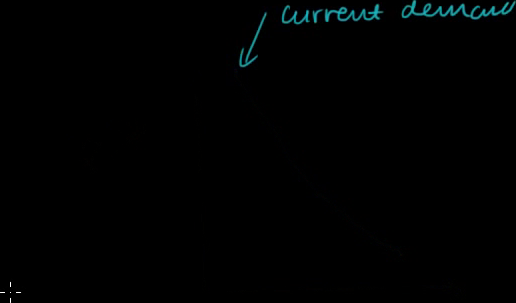 current demand